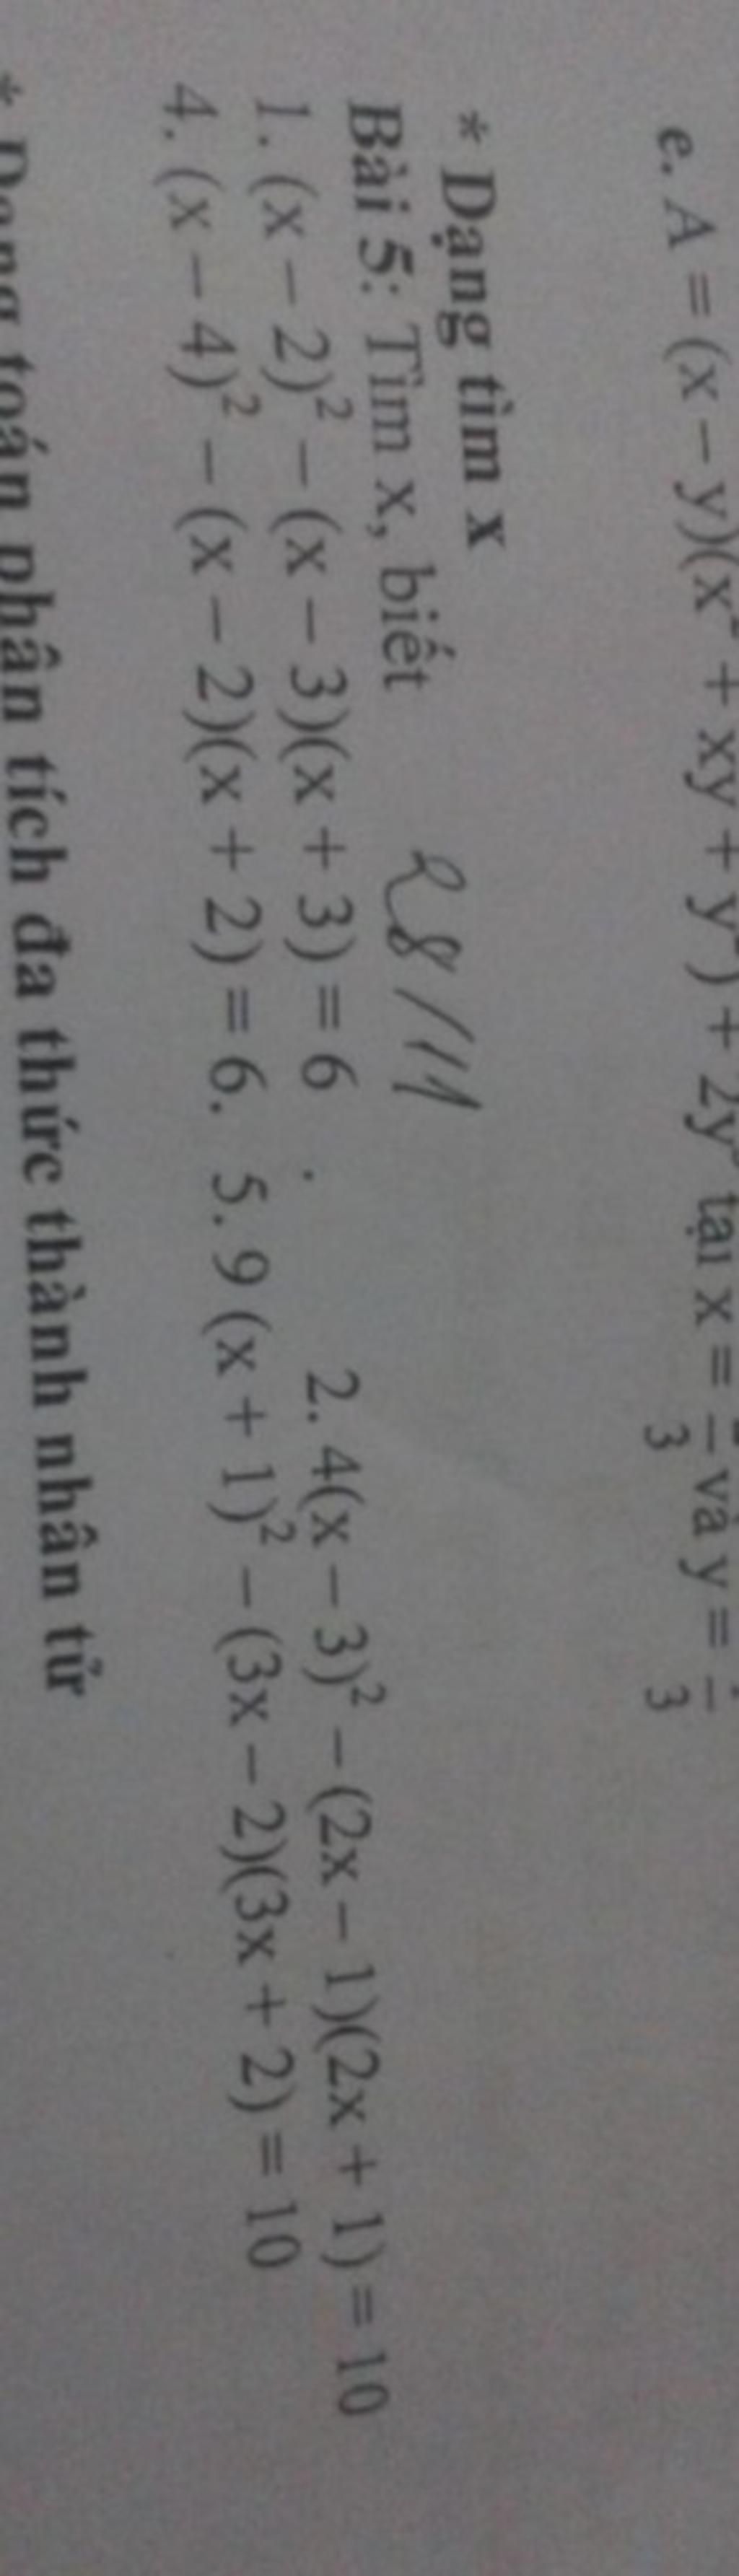 e. A = (x – y)(x² + xy + y²) + 2y³ tại x = 3 và y = 3
* Dạng tìm x
Bài 5: Tìm x, biết 28/11
1. (x – 2)² – (x – 3)(x + 3) = 6 . 2. 4(x – 3)² – (2x – 1)(2x + 1) = 10
4. (x – 4)² – (x – 2)(x + 2) = 6. 5. 9 (x + 1)² – (3x – 2)(3x + 2) = 10
* Dạng toán phân tích đa thức thành nhân tử